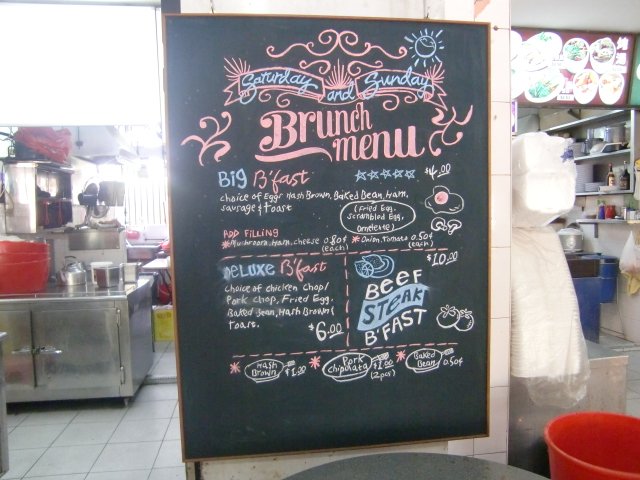 Saturday and Sunday
Brunch
menu
Big B'fast $4.00
choice of Eggr Hash Brown, Baked Bean, Ham,
sausage & toast
(Fried Egg,
Scrambled Egg,
Omelette)
ADD FILLING
*Mushroom, Ham, cheese 0.80¢ *Onion, Tomato 0.50¢
(each) (each)
DeLuxe B'fast
choice of chicken chop/
Pork chop, Fried Egg,
Baked Bean, Hash Brown &
toast.
$6.00
$10.00
BEEF
STEAK
B'FAST
*Hash
Brown $1.00
*Pork
chipolata $1.00
(2pcs)
*Baked
Bean 0.50¢